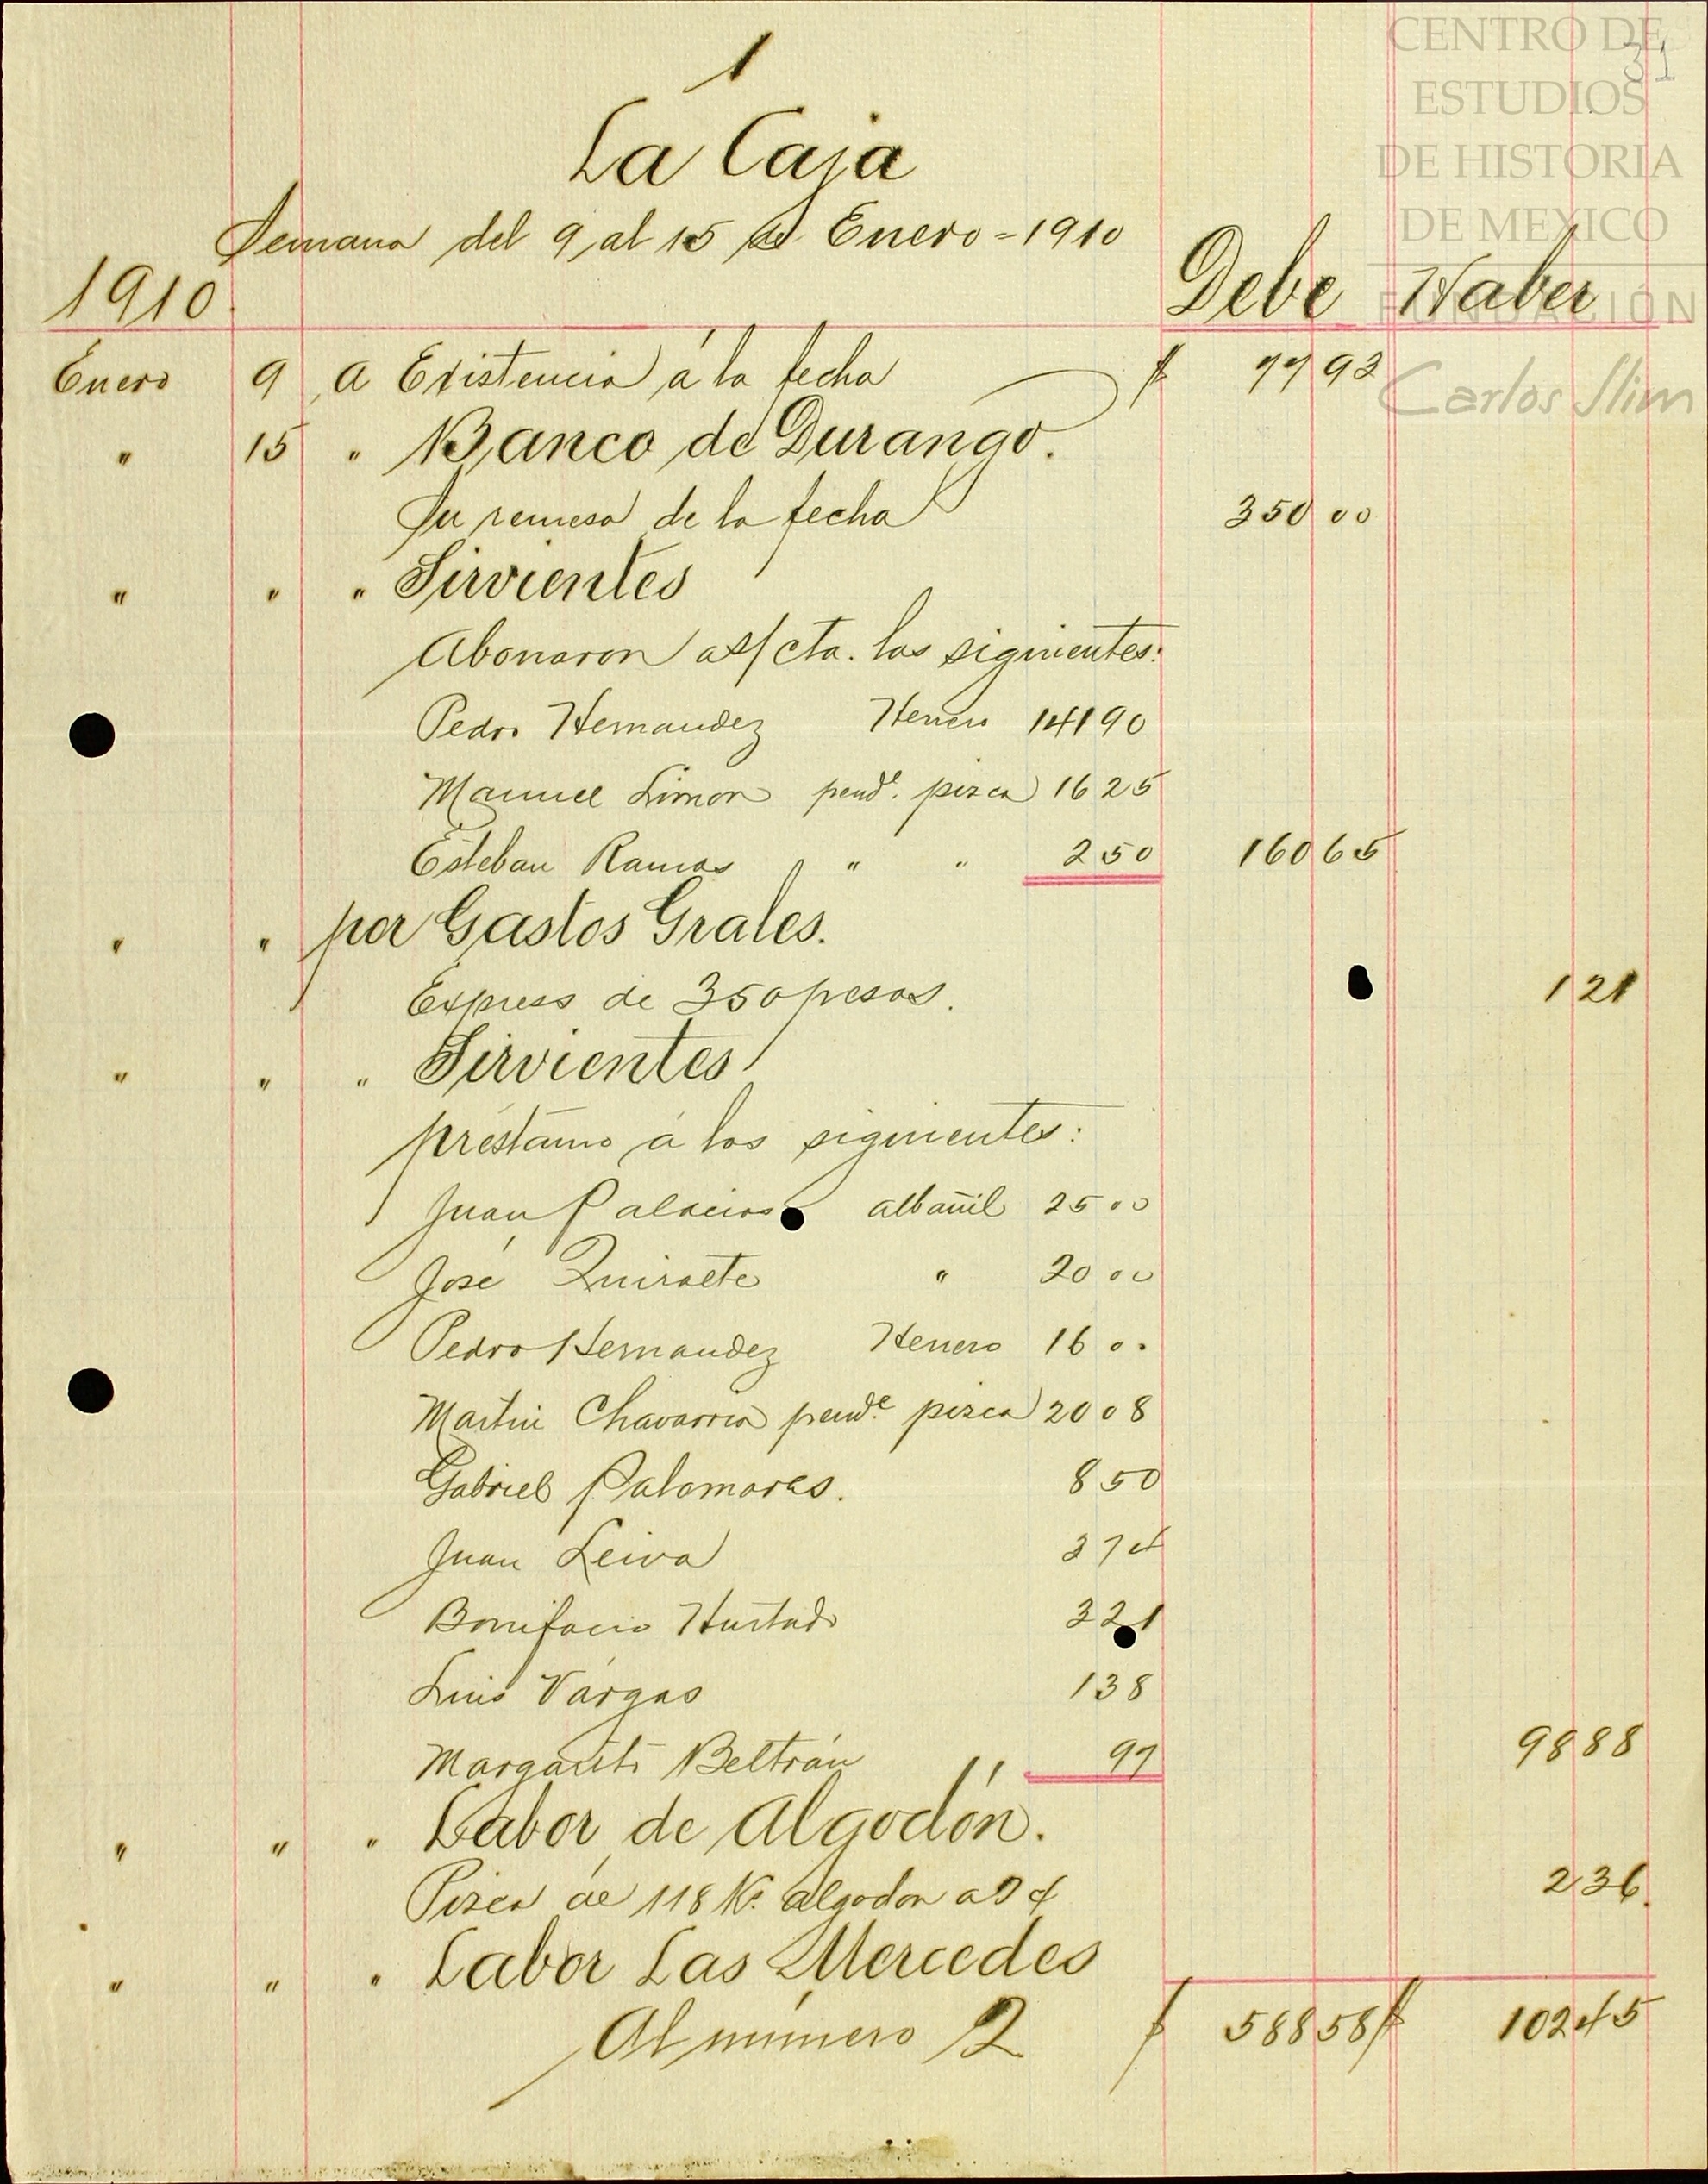 1
31
CENTRO DE
ESTUDIOS
DE HISTORIA
DE MEXICO
FUNDACIÓN
Carlos Slim
La Caja
Semana del 9 al 15 de Enero = 1910
1910. Debe Haber
Enero 9 a Existencia á la fecha $ 77 93
" 15 " Banco de Durango.
Su remesa de la fecha 350 00
" " " Sirvientes
Abonaron a s/ cta. los siguientes:
Pedro Hernandez Herrero 141 90
Manuel Limon pend.e pizca 16 25
Esteban Ramos " " 2 50 160 65
" " por Gastos Grales.
Express de 350 pesos. 1 21
" " " Sirvientes
préstamo á los siguientes:
Juan Palacios albañil 25 00
José Quiraete " 20 00
Pedro Hernandez Herrero 16 00
Martin Chavarria pend.e pizca 20 08
Gabriel Palomares. 8 50
Juan Leiva 3 74
Bonifacio Hurtado 3 21
Luis Vargas 1 38
Margarito Beltrán 97 98 88
" " " Labor de Algodón.
Pizca de 118 K.s algodon a 2 ¢ 2 36.
" " " Labor Las Mercedes
Al número 2 $ 588 58 $ 102 45